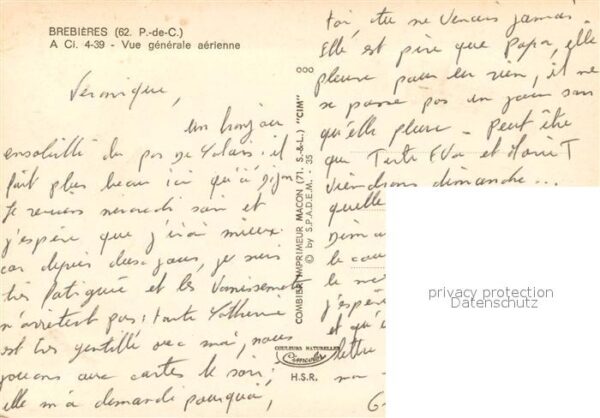 BREBIÈRES (62. P.-de-C.)
A Ci. 4-39 - Vue générale aérienne
Véronique,
Un bonjour
ensoleillé du pas de Calais : il
fait plus beau ici qu'à Dijon
Je reviens mercredi soir et
j'espère que j'irai mieux
car depuis deux jours, je suis
très fatiguée et les vomissements
n'arrêtent pas ; tante Catherine
est très gentille avec moi, nous
jouons aux cartes le soir ;
elle m'a demandé pourquoi,
COMBIER IMPRIMEUR MACON (71. S.-&-L.) "CIM"
© by S.P.A.D.E.M. - 35
COULEURS NATURELLES
Cimcolor
H.S.R.
toi, tu ne venais jamais.
Elle est pire que Papa, elle
pleure pour un rien, il ne
se passe pas un jour sans
qu'elle pleure - Peut être
que Tante EVA et
viendrons dimanche...
quelle
le
j'espère
et qu'
lettre
privacy protection
Datenschutz